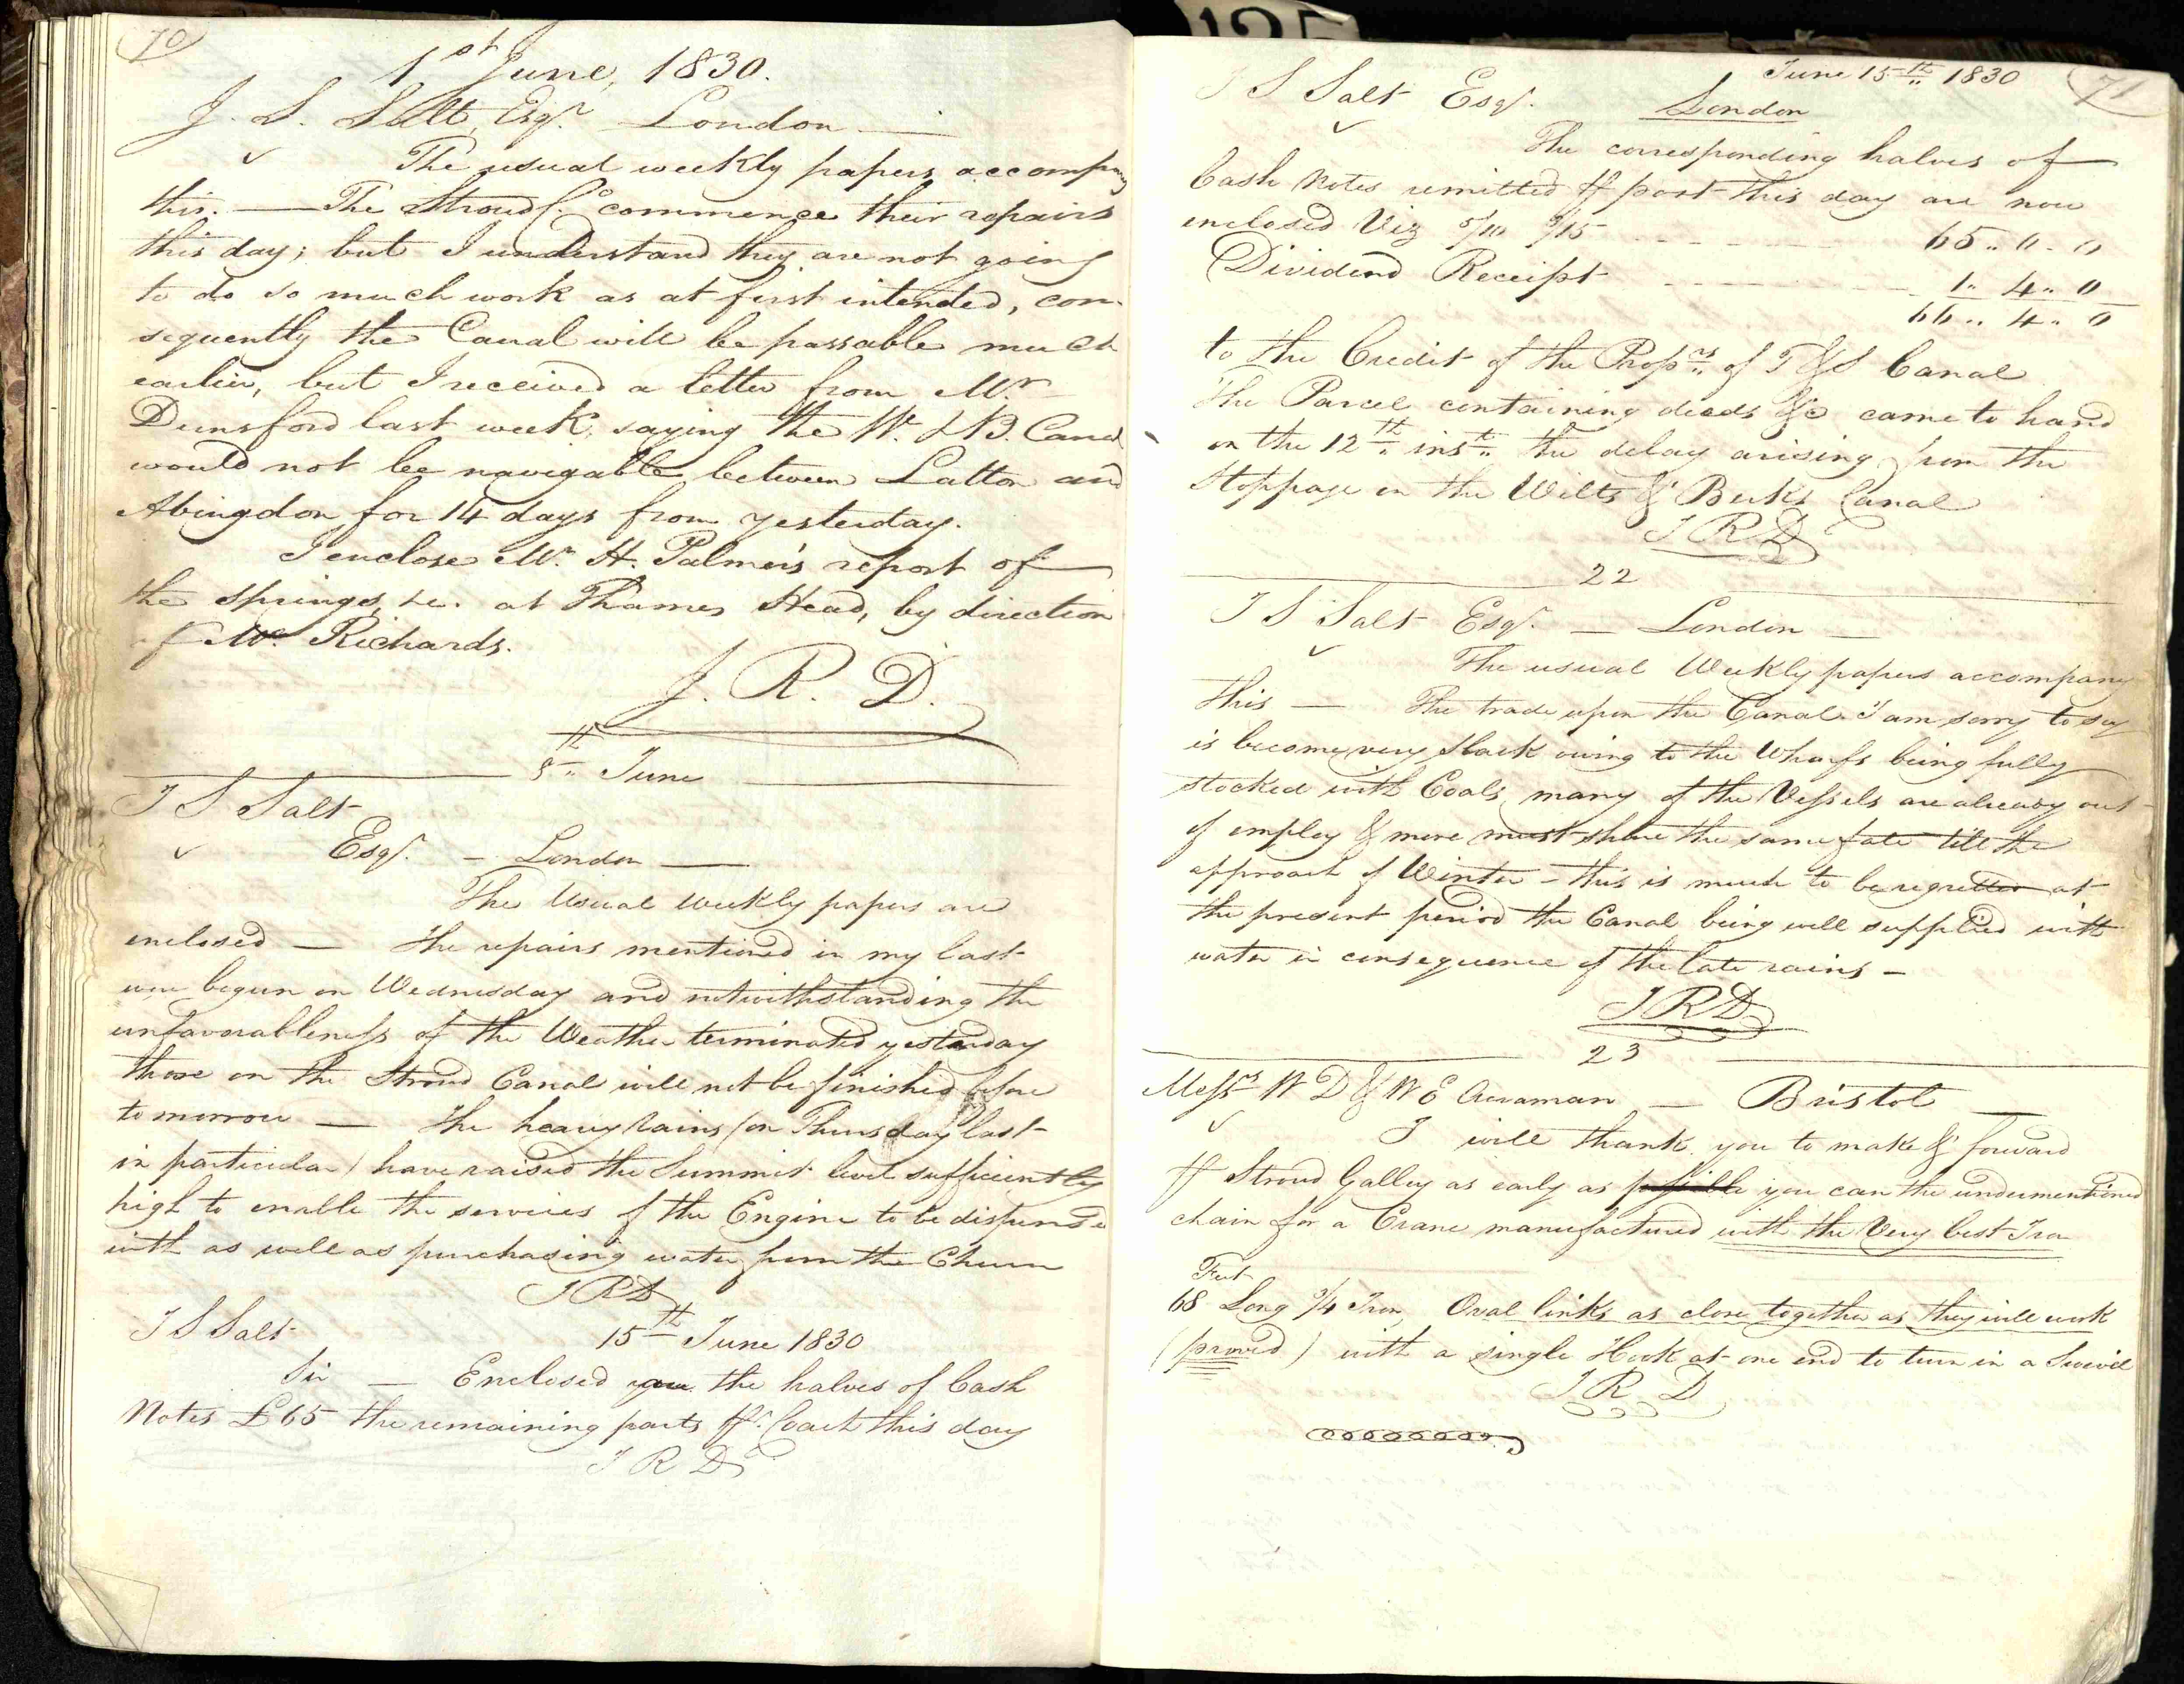 70
1st June, 1830.
J. S. Salt, Esqr. London —
The usual weekly papers accompany
this. — The Stroud Co. commence their repairs
this day; but I understand they are not going
to do so much work as at first intended, con-
sequently the Canal will be passable much
earlier, but I received a letter from Mr
Dunsford last week, saying the W. & B. Canal
would not be navigable between Latton and
Abingdon for 14 days from yesterday.
I enclose Mr. H. Palmer's report of
the Springs, &c. at Thames Head, by direction
of Mr. Richards.
J. R. D.
8th June
J S Salt
Esqr. — London —
The Usual Weekly papers are
enclosed — The repairs mentioned in my last
were begun on Wednesday and notwithstanding the
unfavorableness of the Weather terminated yesterday
those on the Stroud Canal will not be finished before
to morrow — The heavy rains (on Thursday last
in particular) have raised the Summit level sufficiently
high to enable the services of the Engine to be dispensed
with as well as purchasing water from the Churn
J R D
J S Salt 15th June 1830
Sir — Enclosed you the halves of Cash
Notes £65 the remaining parts pr. Coach this day
J R D
125
June 15th 1830 71
J S Salt Esqr. London
The corresponding halves of
Cash Notes remitted pr post this day are now
enclosed Viz 5/10 3/15 - - - - 65 .. 0 .. 0
Dividend Receipt - - - - - 1 .. 4 .. 0
66 .. 4 .. 0
to the Credit of the Proprs of T & S Canal
The Parcel containing deeds &c came to hand
on the 12th inst the delay arising from the
Stoppage on the Wilts & Berks Canal
J R D
22
J S Salt Esqr. — London —
The usual Weekly papers accompany
this — The trade upon the Canal I am sorry to say
is become very slack owing to the Wharfs being fully
stocked with Coals, many of the Vessels are already out
of employ & more must share the same fate till the
approach of Winter — this is much to be regretted at
the present period the Canal being well supplied with
water in consequence of the late rains —
J R D
23
Messrs W D & W E Acraman — Bristol —
I will thank you to make & forward
pr Stroud Galley as early as possible you can the undermentioned
chain for a Crane manufactured with the Very best Iron
Feet
68 Long 3/4 Iron, Oval links as close together as they will work
(proved) with a single Hook at one end to turn in a Swivel
J R D